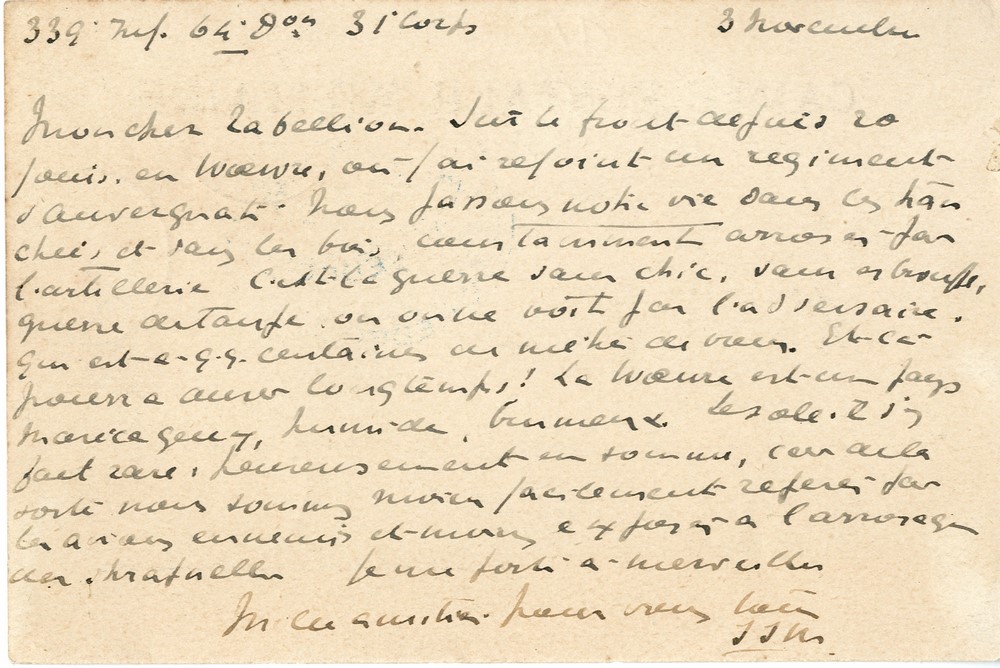 339 Inf. 64e Don 31 Corps 3 Novembre
Mon cher Zabellion. Sur le front depuis 20
jours. en Woevre, où j'ai rejoint un régiment
d'auvergnats. Nous passons notre vie dans les tran
chées, et dans les bois, constamment arrosés par
l'artillerie. C'est la guerre sans chic, sans esbrouffe,
guerre de taupe. on on ne voit pas l'adversaire.
qui est à q.q. centaines de mètres de vous. Et ça
pourra durer longtemps! La Woevre est un pays
marécageux, humide, brumeux. Le soleil s'y
fait rare; heureusement en somme, car de la
sorte nous sommes moins facilement repérés par
les avions ennemis et moins exposés à l'arrosage
des shrapnells Je me porte à merveille
Mille amitiés pour vous tous